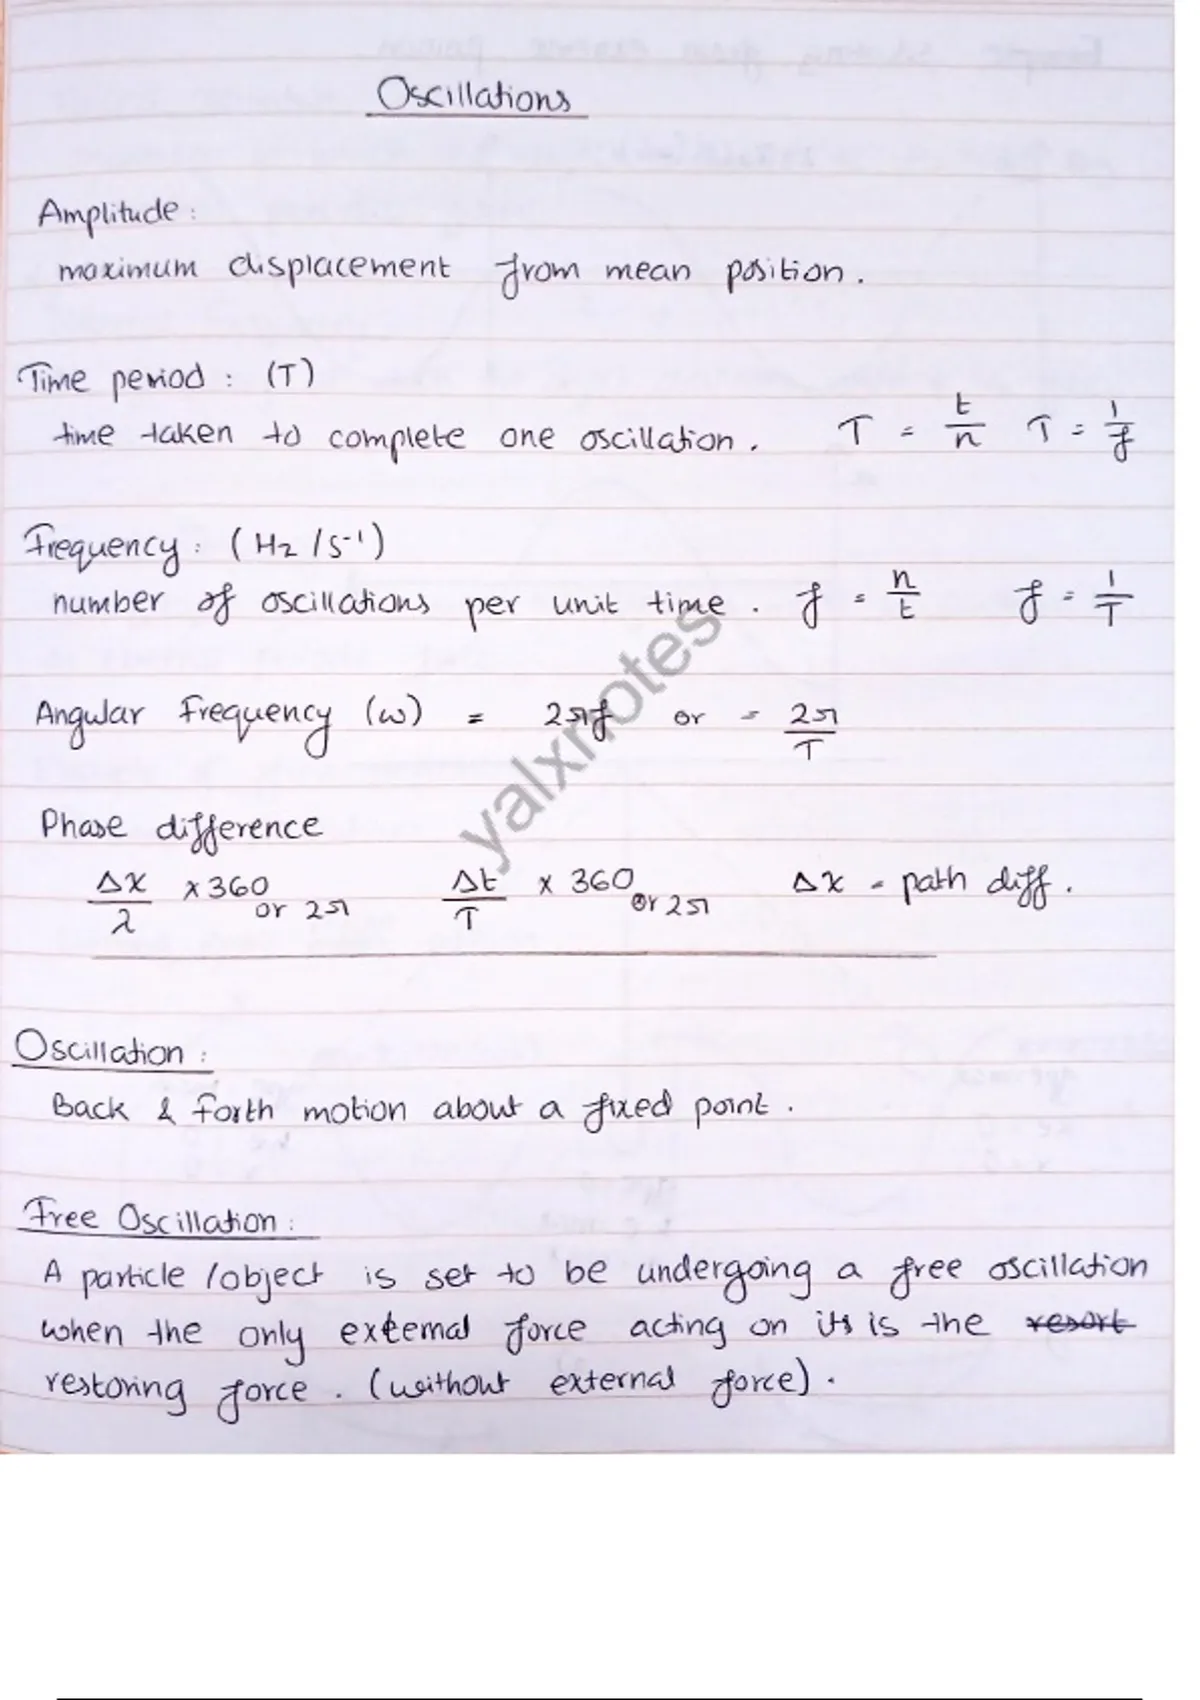 Oscillations
Amplitude:
maximum displacement from mean position.
Time period: (T)
time taken to complete one oscillation. T = t/n T = 1/f
Frequency: (Hz/s-1)
number of oscillations per unit time. f = n/t f = 1/T
Angular Frequency (ω) = 2πf or = 2π/T
Phase difference
Δx/λ x 360 or 2π Δt/T x 360 or 2π Δx = path diff.
Oscillation:
Back & forth motion about a fixed point.
Free Oscillation:
A particle/object is set to be undergoing a free oscillation
when the only external force acting on its is the resort
restoring force. (without external force).
yalxnotes